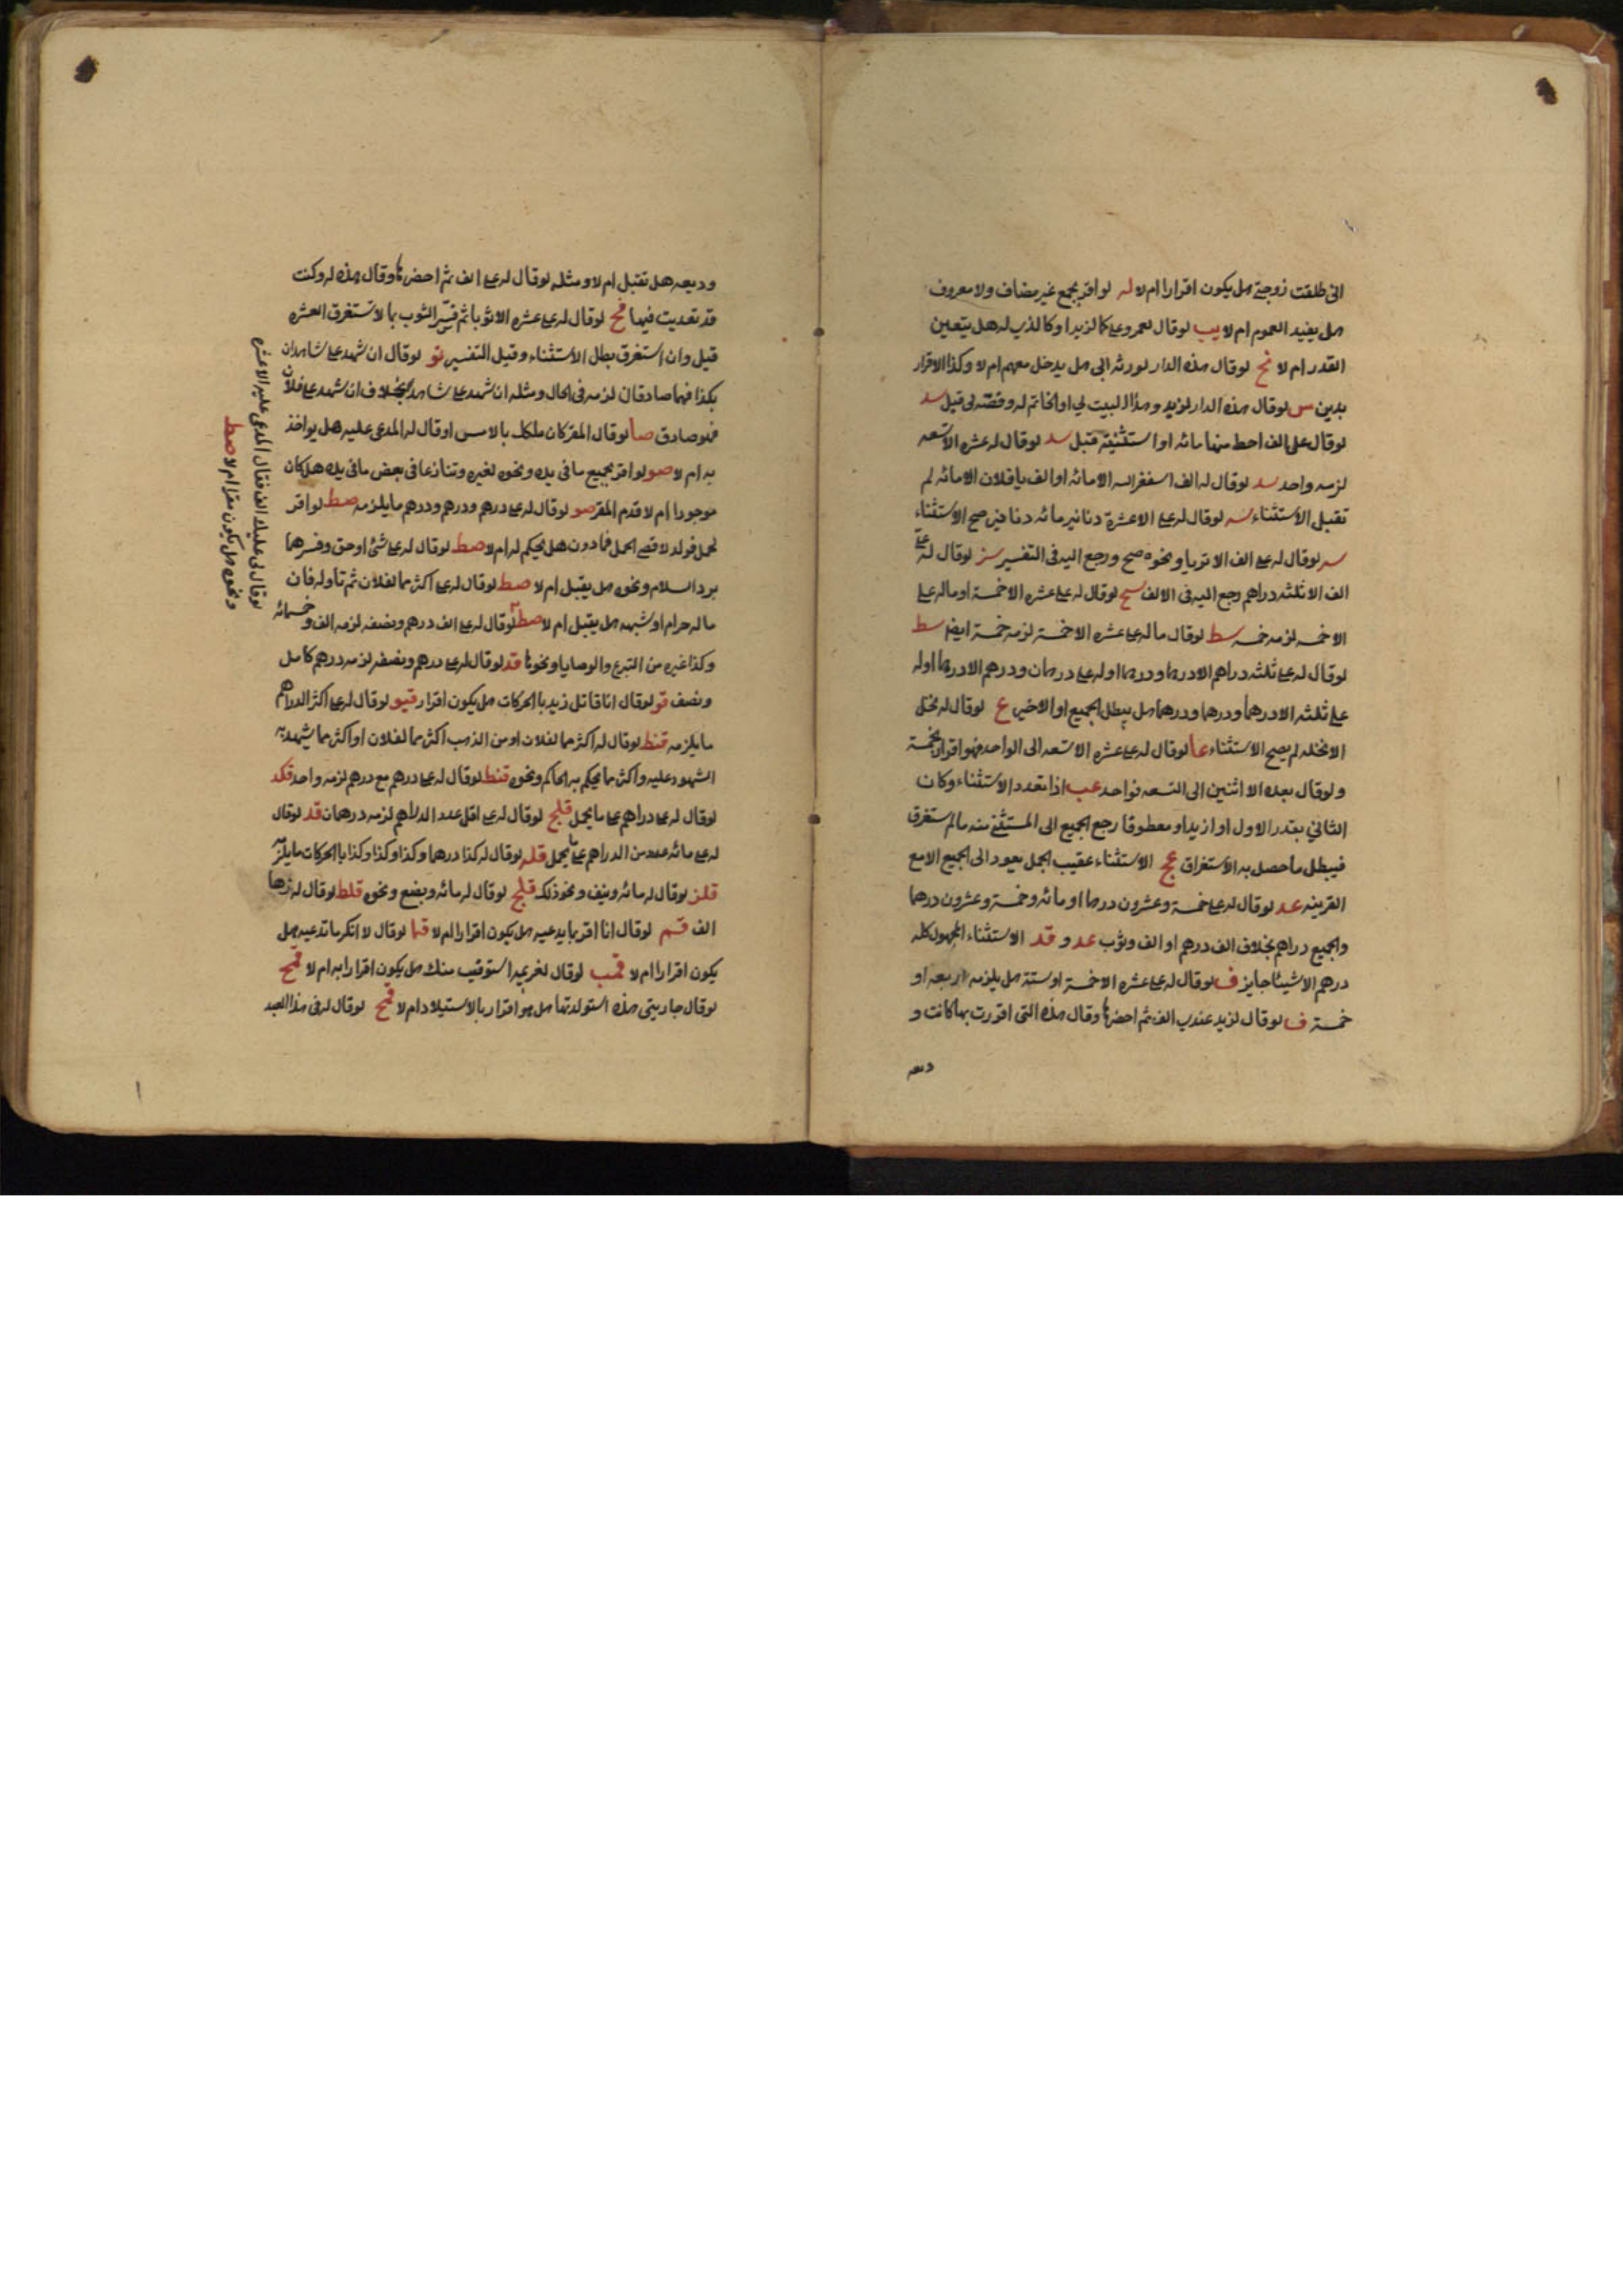 انى طلقت زوجتي هل يكون اقرارا ام لا له لو اقر بجمع غير مضاف ولا معروف
هل يفيد العموم ام لا يب لو قال لعمرو على كما لزيد او كالذي له هل يتعين
القدر ام لا نح لو قال هذه الدار لورثه ابى هل يدخل معهم ام لا وكذا الاقرار
بدين س لو قال هذه الدار لزيد وهذا البيت لي او الخاتم له وفصّه لى قبل سد
لو قال على الف احط منها مائه او استثنيته قبل سد لو قال له عشره الا تسعه
لزمه واحد سد لو قال له الف استغفر الله الا مائه او الف يا فلان الا مائه لم
تقبل الاستثناء سه لو قال له على الا عشرة دنانير مائه دنانير صح الاستثناء
سه لو قال له على الف الا ثوبا ونحوه صح ورجع اليه فى التفسير سز لو قال له على
الف الا ثلثه دراهم رجع اليه فى الالف سح لو قال له على عشره الا خمسة او ماله على
الا خمسه لزمه خمسه سط لو قال ماله على عشره الا خمسة لزمه خمسة ايضا سط
لو قال له على ثلثه دراهم الا درهما ودرهما او له على درهمان ودرهم الا درهما او له
على ثلثه الا درهما ودرهما ودرهما هل يبطل الجميع او الاخير ع لو قال له نخل
الا نخله لم يصح الاستثناء عا لو قال له على عشره الا تسعه الى الواحد فهو اقرار بخمسة
ولو قال بعده الا اثنين الى التسعه فواحد عب اذا تعدد الاستثناء وكان
الثاني بقدر الاول او ازيد او معطوفا رجع الجميع الى المستثنى منه مالم يستغرق
فيبطل ما حصل به الاستغراق عج الاستثناء عقيب الجمل يعود الى الجميع الا مع
القرينه عد لو قال له على خمسة وعشرون درهما او مائه وخمسة وعشرون درهما
والجميع دراهم بخلاف الف درهم او الف وثوب عد و قد الاستثناء المجهول كله
درهم الا شيئا جايز ف لو قال له على عشره الا خمسة او ستة هل يلزمه اربعه او
خمسة ف لو قال لزيد عندي الف ثم احضرها وقال هذه التى اقررت بها كانت و
ديعه
وديعه هل تقبل ام لا ومثله لو قال له على الف ثم احضرها وقال هذه له وكنت
قد تعديت فيها فح لو قال له على عشره الا ثوبا ثم فسّر الثوب بما لا يستغرق العشره
قبل وان استغرق بطل الاستثناء وقيل التفسير تو لو قال ان شهد على شاهدان
بكذا فهما صادقان لزمه فى الحال ومثله ان شهد على شاهد بخلاف ان شهد على فلان
فهو صادق صا لو قال المقر كان ملكك بالامس او قال له المدعى عليه هل يواخذ
به ام لا صو لو اقر بجميع ما فى يده ونحوه لغيره وتنازعا فى بعض ما فى يده هل كان
موجودا ام لا قدم المقر صو لو قال له على درهم ودرهم ودرهم ما يلزمه صط لو اقر
لحمل فولد لاقصى الحمل فما دون هل يحكم له ام لا صط لو قال له على شئ او حق وفسرهما
برد السلام ونحوه هل يقبل ام لا صط لو قال له على اكثر مما لفلان ثم تاوله فان
ماله حرام او شبهه هل يقبل ام لا صط لو قال له على الف درهم ونصفه لزمه الف وخمسمائه
وكذا غيره من التبرع والوصايا ونحوها قد لو قال له على درهم ونصفه لزمه درهم كامل
ونصف قو لو قال انا قاتل زيد بالحركات هل يكون اقرار قيو لو قال له على اكثر الدراهم
ما يلزمه قنط لو قال له اكثر مما لفلان او من الذهب اكثر مما لفلان او اكثر مما شهد به
الشهود عليه واكثر مما يحكم به الحاكم ونحوه قنط لو قال له على درهم مع درهم لزمه واحد قكد
لو قال له على دراهم على ما يحمل قلح لو قال له على اقل عدد الدراهم لزمه درهمان قد لو قال
له على مائه عدد من الدراهم على ما يحمل قله لو قال له كذا درهما وكذا وكذا وكذا بالحركات ما يلزمه
قلز لو قال له مائه ونيف ونحو ذلك قلح لو قال له مائه وبضع ونحوه قلط لو قال له زها
الف قم لو قال انا اقر بما يدعيه هل يكون اقرارا ام لا قما لو قال لا انكر ما تدعيه هل
يكون اقرارا ام لا قمب لو قال لغريمه استوفيت منك هل يكون اقرارا به ام لا قمح
لو قال جاريتى هذه استولدتها هل هو اقرار بالاستيلاد ام لا قمح لو قال له فى هذا العبد
لو قال لى عليك الف فقال المدعى عليه الا عشره
ونحوه هل يكون مقرا ام لا صط